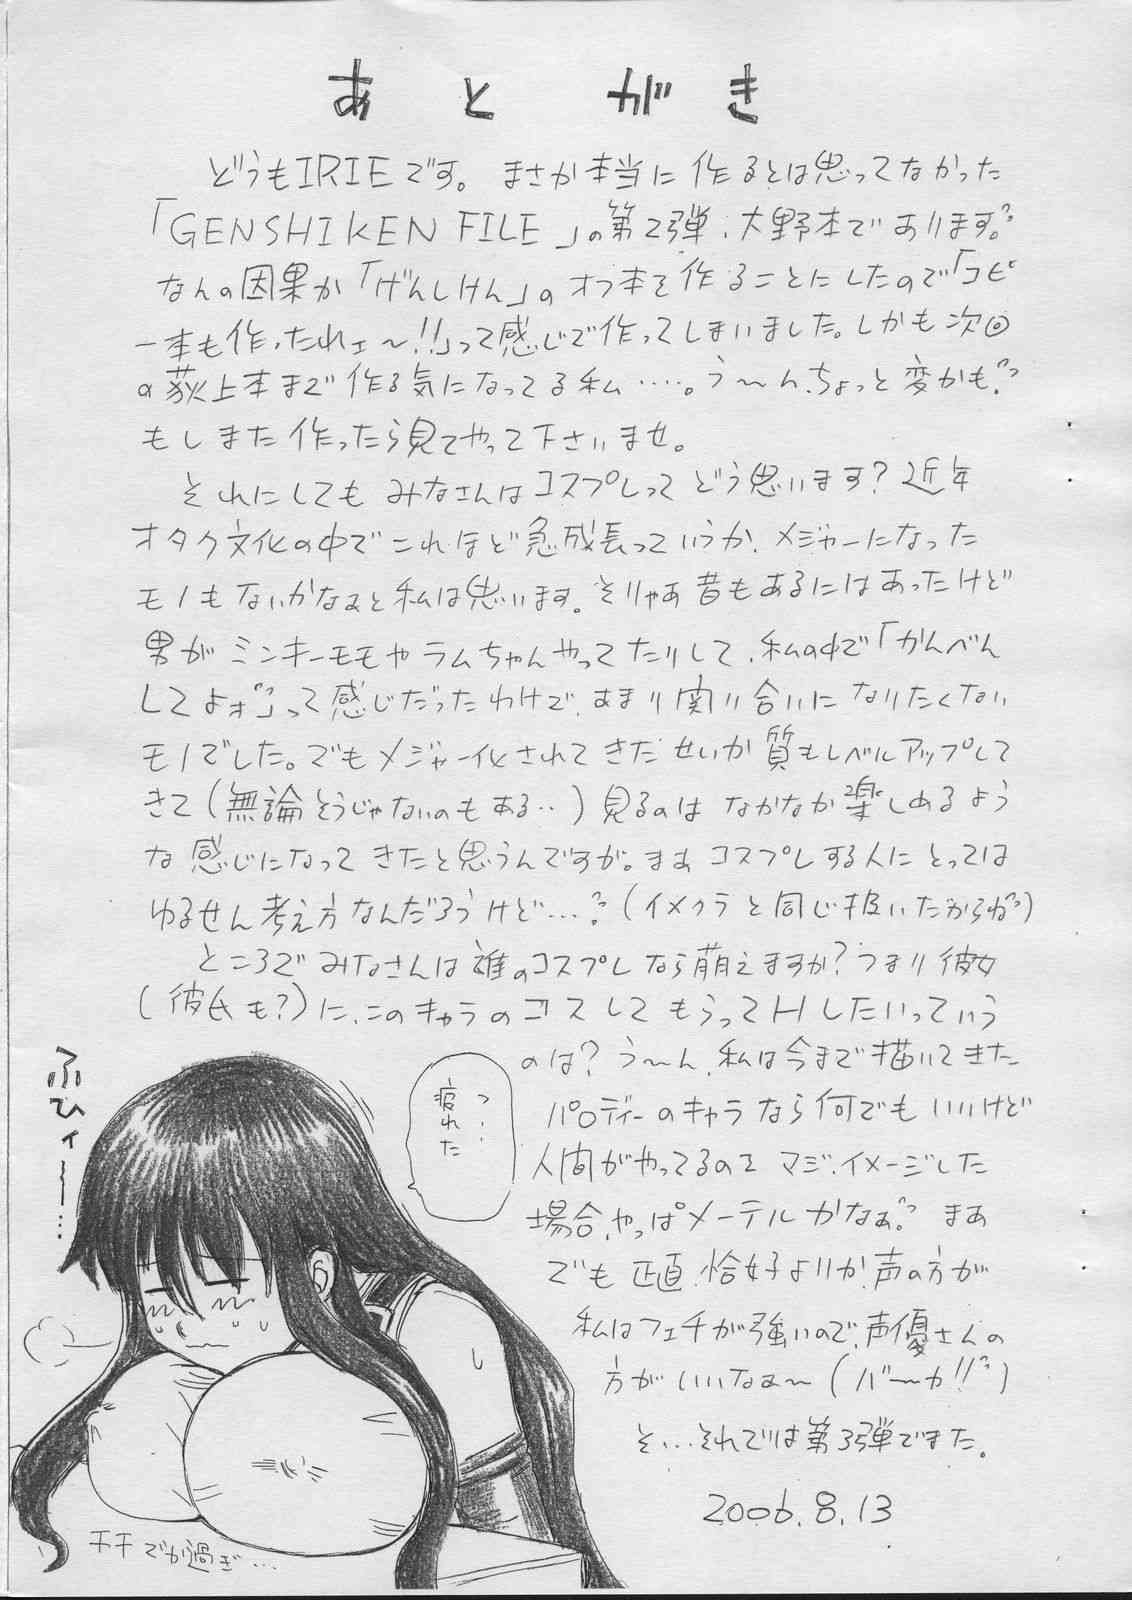 あとがき
どうもIRIEです。まさか本当に作るとは思ってなかった
「GENSHIKEN FILE」の第2弾、大野本であります。
なんの因果か「げんしけん」のオフ本を作ることにしたので「コピ
ー本も作ったれェ〜!!」って感じで作ってしまいました。しかも次回
の荻上本まで作る気になってる私……。う〜ん、ちょっと変かも。
もしまた作ったら見てやって下さいませ。
それにしてもみなさんはコスプレってどう思います?近年
オタク文化の中でこれほど急成長っていうか、メジャーになった
モノもないかなぁと私は思います。そりゃあ昔もあるにはあったけど
男がミンキーモモやラムちゃんやってたりして、私の中で「かんべん
してよォ」って感じだったわけで、あまり関り合いになりたくない
モノでした。でもメジャー化されてきたせいか質もレベルアップして
きて(無論そうじゃないのもある‥)見るのはなかなか楽しめるよう
な感じになってきたと思うんですが。まぁコスプレする人にとっては
ゆるせん考え方なんだろうけど…。(イメクラと同じ扱いだからね)
ところでみなさんは誰のコスプレなら萌えますか?つまり彼女
(彼氏も?)に、このキャラのコスしてもらってHしたいっていう
のは?う〜ん、私は今まで描いてきた
パロディーのキャラなら何でもいいけど
人間がやってるのをマジ、イメージした
場合、やっぱメーテルかなぁ。まぁ
でも正直、恰好よりか声の方が
私はフェチが強いので、声優さんの
方がいいなぁ〜(バーカ!!)
そ…それでは第3弾でまた。
2006.8.13
ふひィー…
つ…
疲れた
チチでか過ぎ…